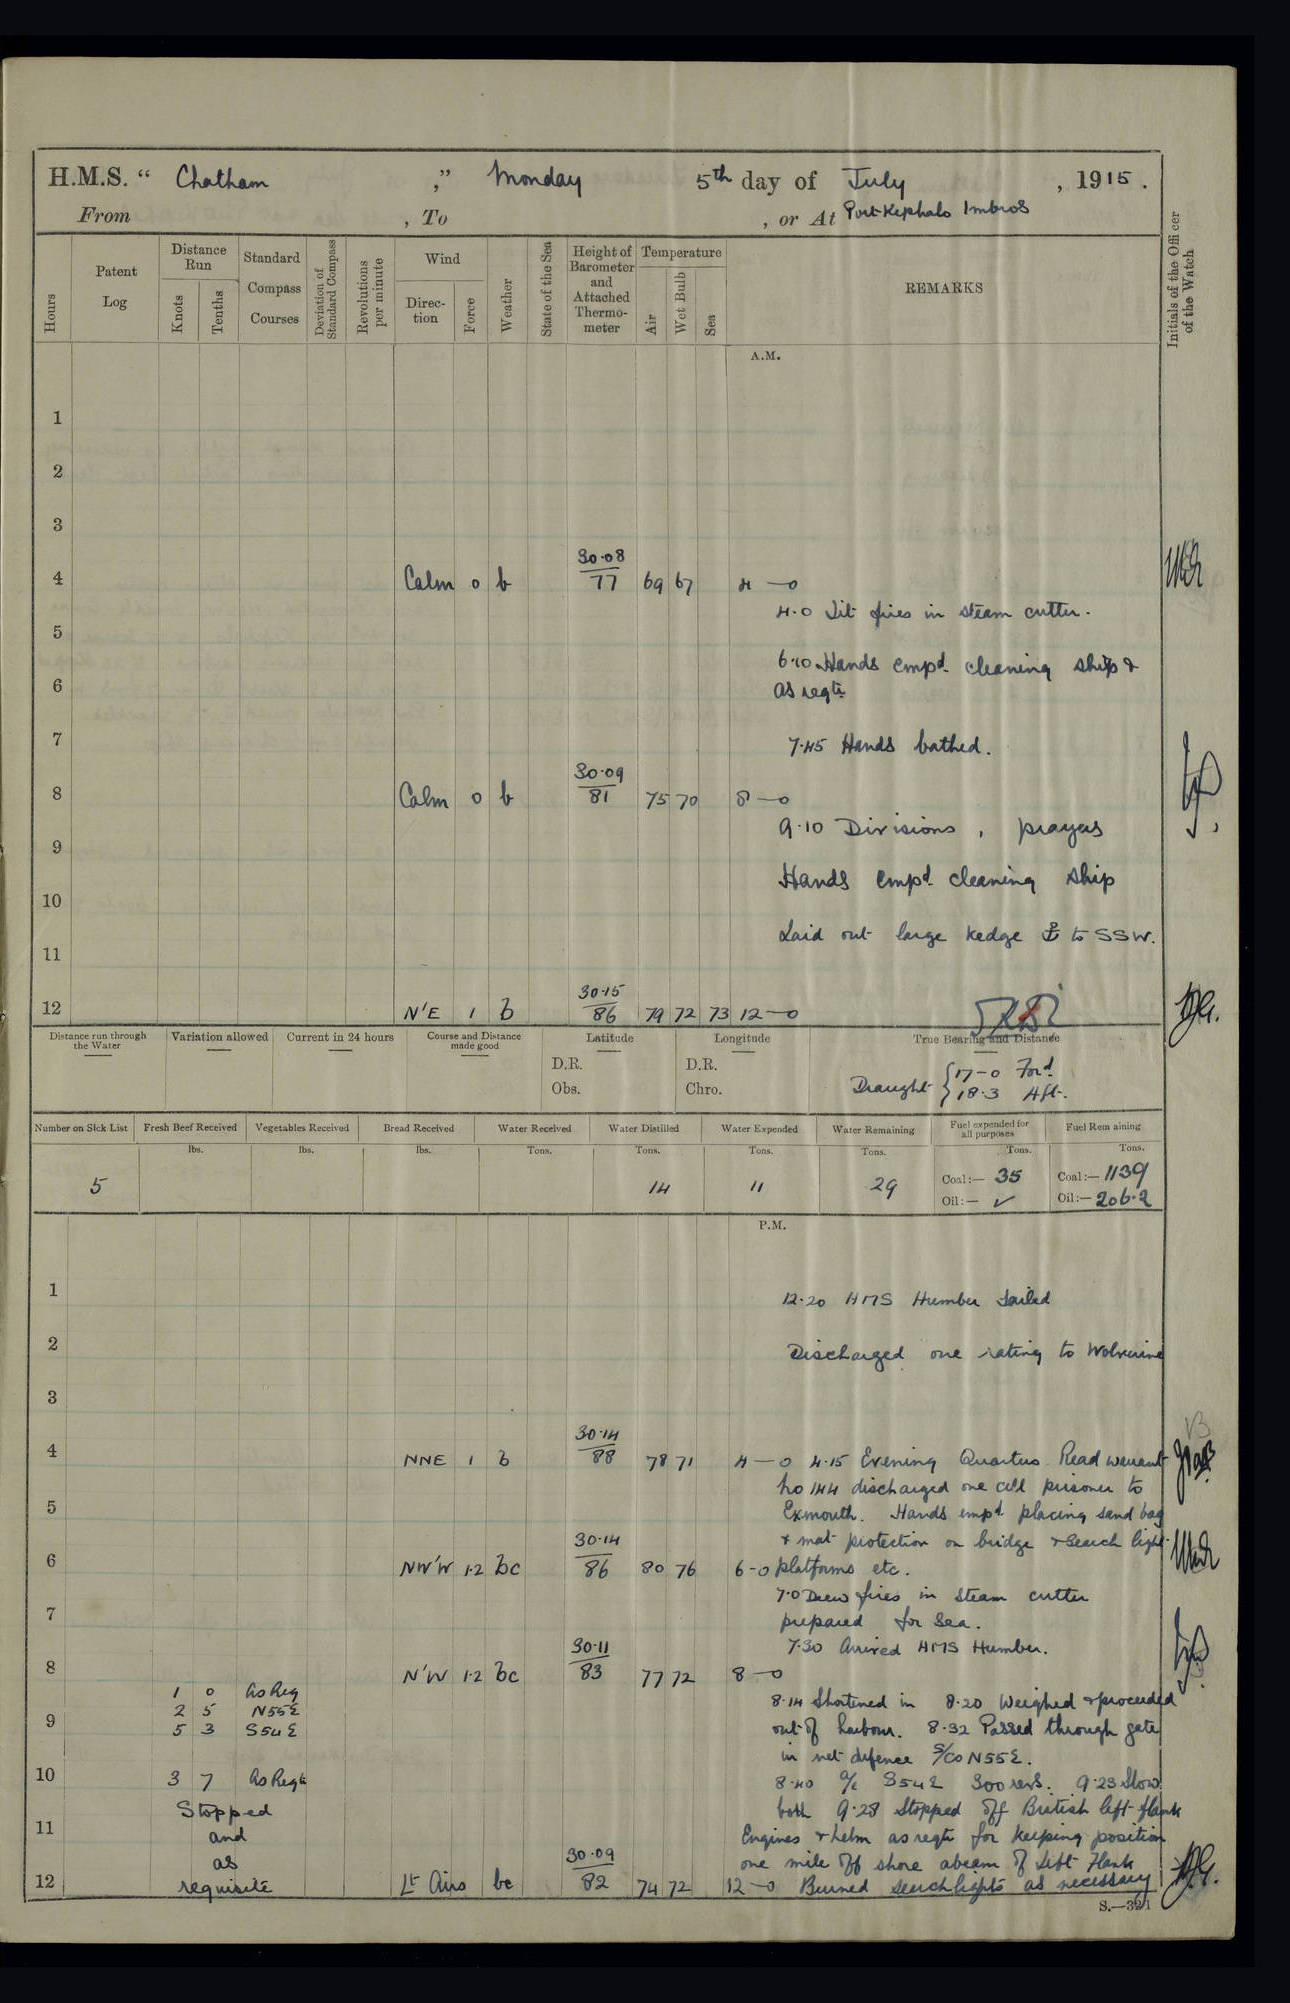 H.M.S. “ Chatham ,” Monday 5th day of July , 1915 .
From , To , or At Port Kephalo Imbros
Hours
Patent Log
Distance Run
Knots
Tenths
Standard Compass Courses
Deviation of Standard Compass
Revolutions per minute
Wind
Direc-tion
Force
Weather
State of the Sea
Height of Barometer and Attached Thermo-meter
Temperature
Air
Wet Bulb
Sea
REMARKS
Initials of the Officer of the Watch
A.M.
1
2
3
30·08
4 Calm 0 b 77 69 67 4 — 0
4·0 Lit fires in steam cutter.
5
6·10 Hands empd cleaning ship &
6 as reqte
7 7·45 Hands bathed.
30·09
8 Calm 0 b 81 75 70 8 — 0
9·10 Divisions , prayers
9
Hands empd cleaning ship
10
Laid out large kedge ⚓ to SSW.
11
30·15
12 N'E 1 b 86 79 72 73 12 — 0
Distance run through the Water
Variation allowed
Current in 24 hours
Course and Distance made good
Latitude
D.R.
Obs.
Longitude
D.R.
Chro.
True Bearing and Distance
Draught { 17-0 Ford.
18·3 Aft.
Number on Sick List
Fresh Beef Received
Vegetables Received
Bread Received
Water Received
Water Distilled
Water Expended
Water Remaining
Fuel expended for all purposes
Fuel Remaining
lbs. lbs. lbs. Tons. Tons. Tons. Tons. Tons. Tons.
5 14 11 29 Coal:— 35 Coal:— 1139
Oil:— ✓ Oil:— 206·2
P.M.
1 12·20 HMS Humber Sailed
2 Discharged one rating to Wolverine
3
30·14
4 NNE 1 b 88 78 71 4 — 0 4·15 Evening Quarters Read warrant
No 144 discharged one cell prisoner to
5 Exmouth. Hands empd placing sand bag
30·14 & mat protection on bridge & Search light
6 NW'W 1·2 bc 86 80 76 6-0 platforms etc.
7·0 Drew fires in Steam cutter
7 prepared for Sea.
30·11 7·30 Arrived HMS Humber.
8 N'W 1·2 bc 83 77 72 8 — 0
1 0 As Req
8·14 Shortened in 8·20 Weighed & proceeded
2 5 N55E
9 5 3 S54E out of harbour. 8·32 Passed through gate
in net defence S/Co N55E.
10 3 7 As Reqte 8·40 a/c S54E 300 revs. 9·23 Slow
Stopped both 9·28 Stopped off British left flank
11 and Engines & helm as reqte for keeping position
as 30·09 one mile off shore abeam of Left Flank
12 requisite Lt Airs bc 82 74 72 12 — 0 Burned searchlights as necessary
S.—321